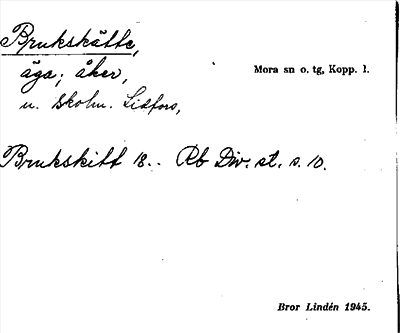 Brukskätte,
äga; åker, Mora sn o. tg, Kopp. l.
u. Skolm. Lidfors,
Brukskitt 18.. Rb Div. st. s. 10.
Bror Lindén 1945.